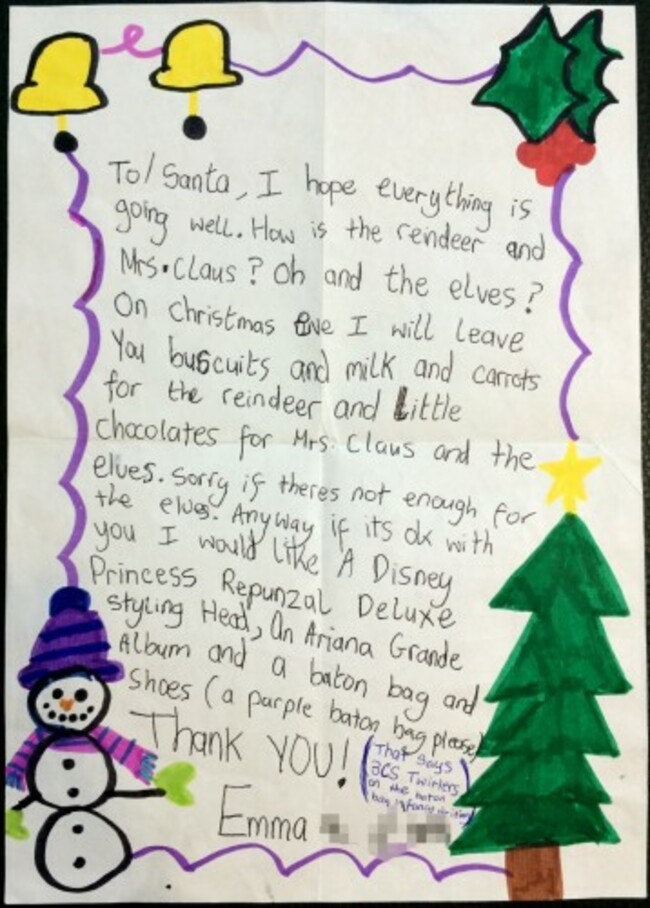 To/Santa, I hope everything is
going well. How is the reindeer and
Mrs. Claus? Oh and the elves?
On Christmas Eve I will leave
You buscuits and milk and carrots
for the reindeer and Little
chocolates for Mrs. Claus and the
elves. Sorry if theres not enough for
the elves. Anyway if its ok with
you I would like A Disney
Princess Repunzal Deluxe
Styling Head, An Ariana Grande
Album and a baton bag and
shoes (a purple baton bag please)
Thank YOU!
(That says
3CS Twirlers
on the baton
bag in fancy writing)
Emma